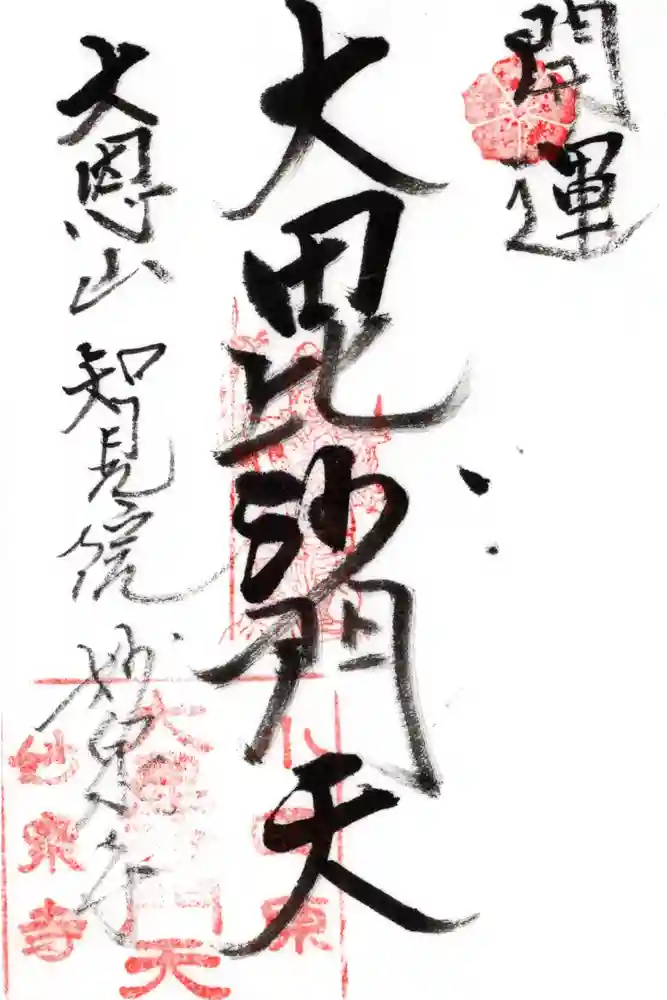 開運
大毘沙門天
大恩山 智見院 妙泉寺
大毘沙門天
妙泉寺